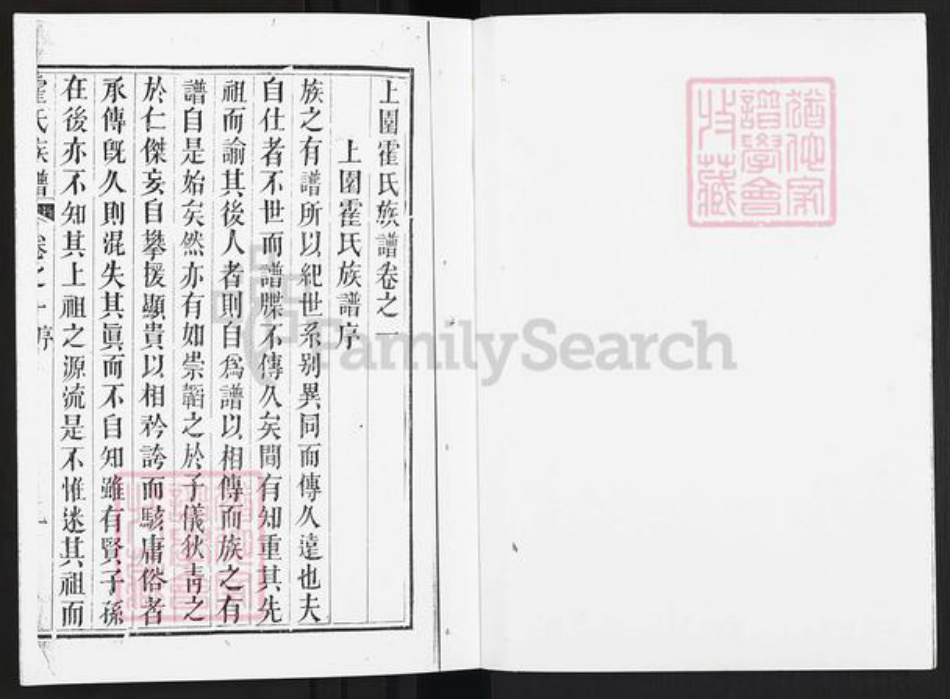 上圍霍氏族譜卷之一
上圍霍氏族譜序
族之有譜所以紀世系别異同而傳久遠也夫
自仕者不世而譜牒不傳久矣間有知重其先
祖而諭其後人者則自爲譜以相傳而族之有
譜自是始矣然亦有如崇韜之於子儀狄青之
於仁傑妄自攀援顯貴以相矜誇而駭庸俗者
承傳旣久則混失其眞而不自知雖有賢子孫
在後亦不知其上祖之源流是不惟迷其祖而
霍氏族譜 卷之一序 一
猶他家
譜學會
收藏
FamilySearch